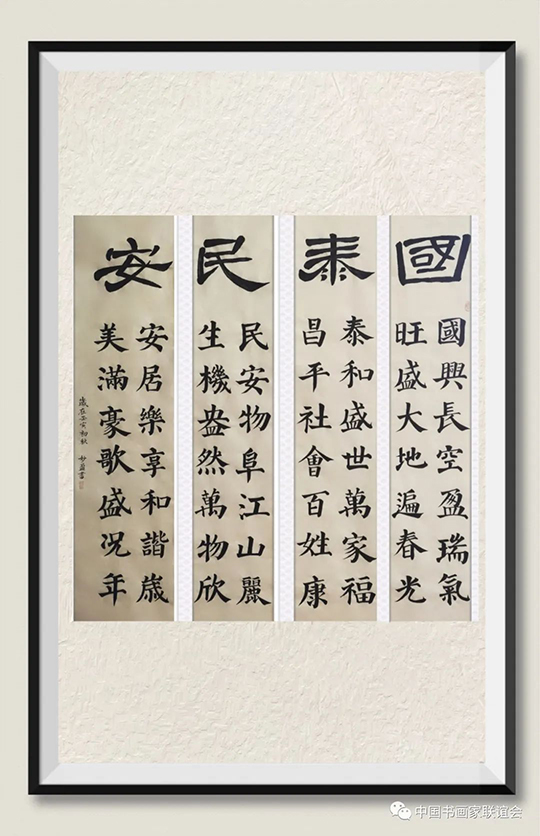 國
國興長空盈瑞氣
旺盛大地遍春光
泰
泰和盛世萬家福
昌平社會百姓康
民
民安物阜江山麗
生機盎然萬物欣
安
安居樂享和諧歳
美滿豪歌盛况年
歲在壬寅初秋
書
中国书画家联谊会